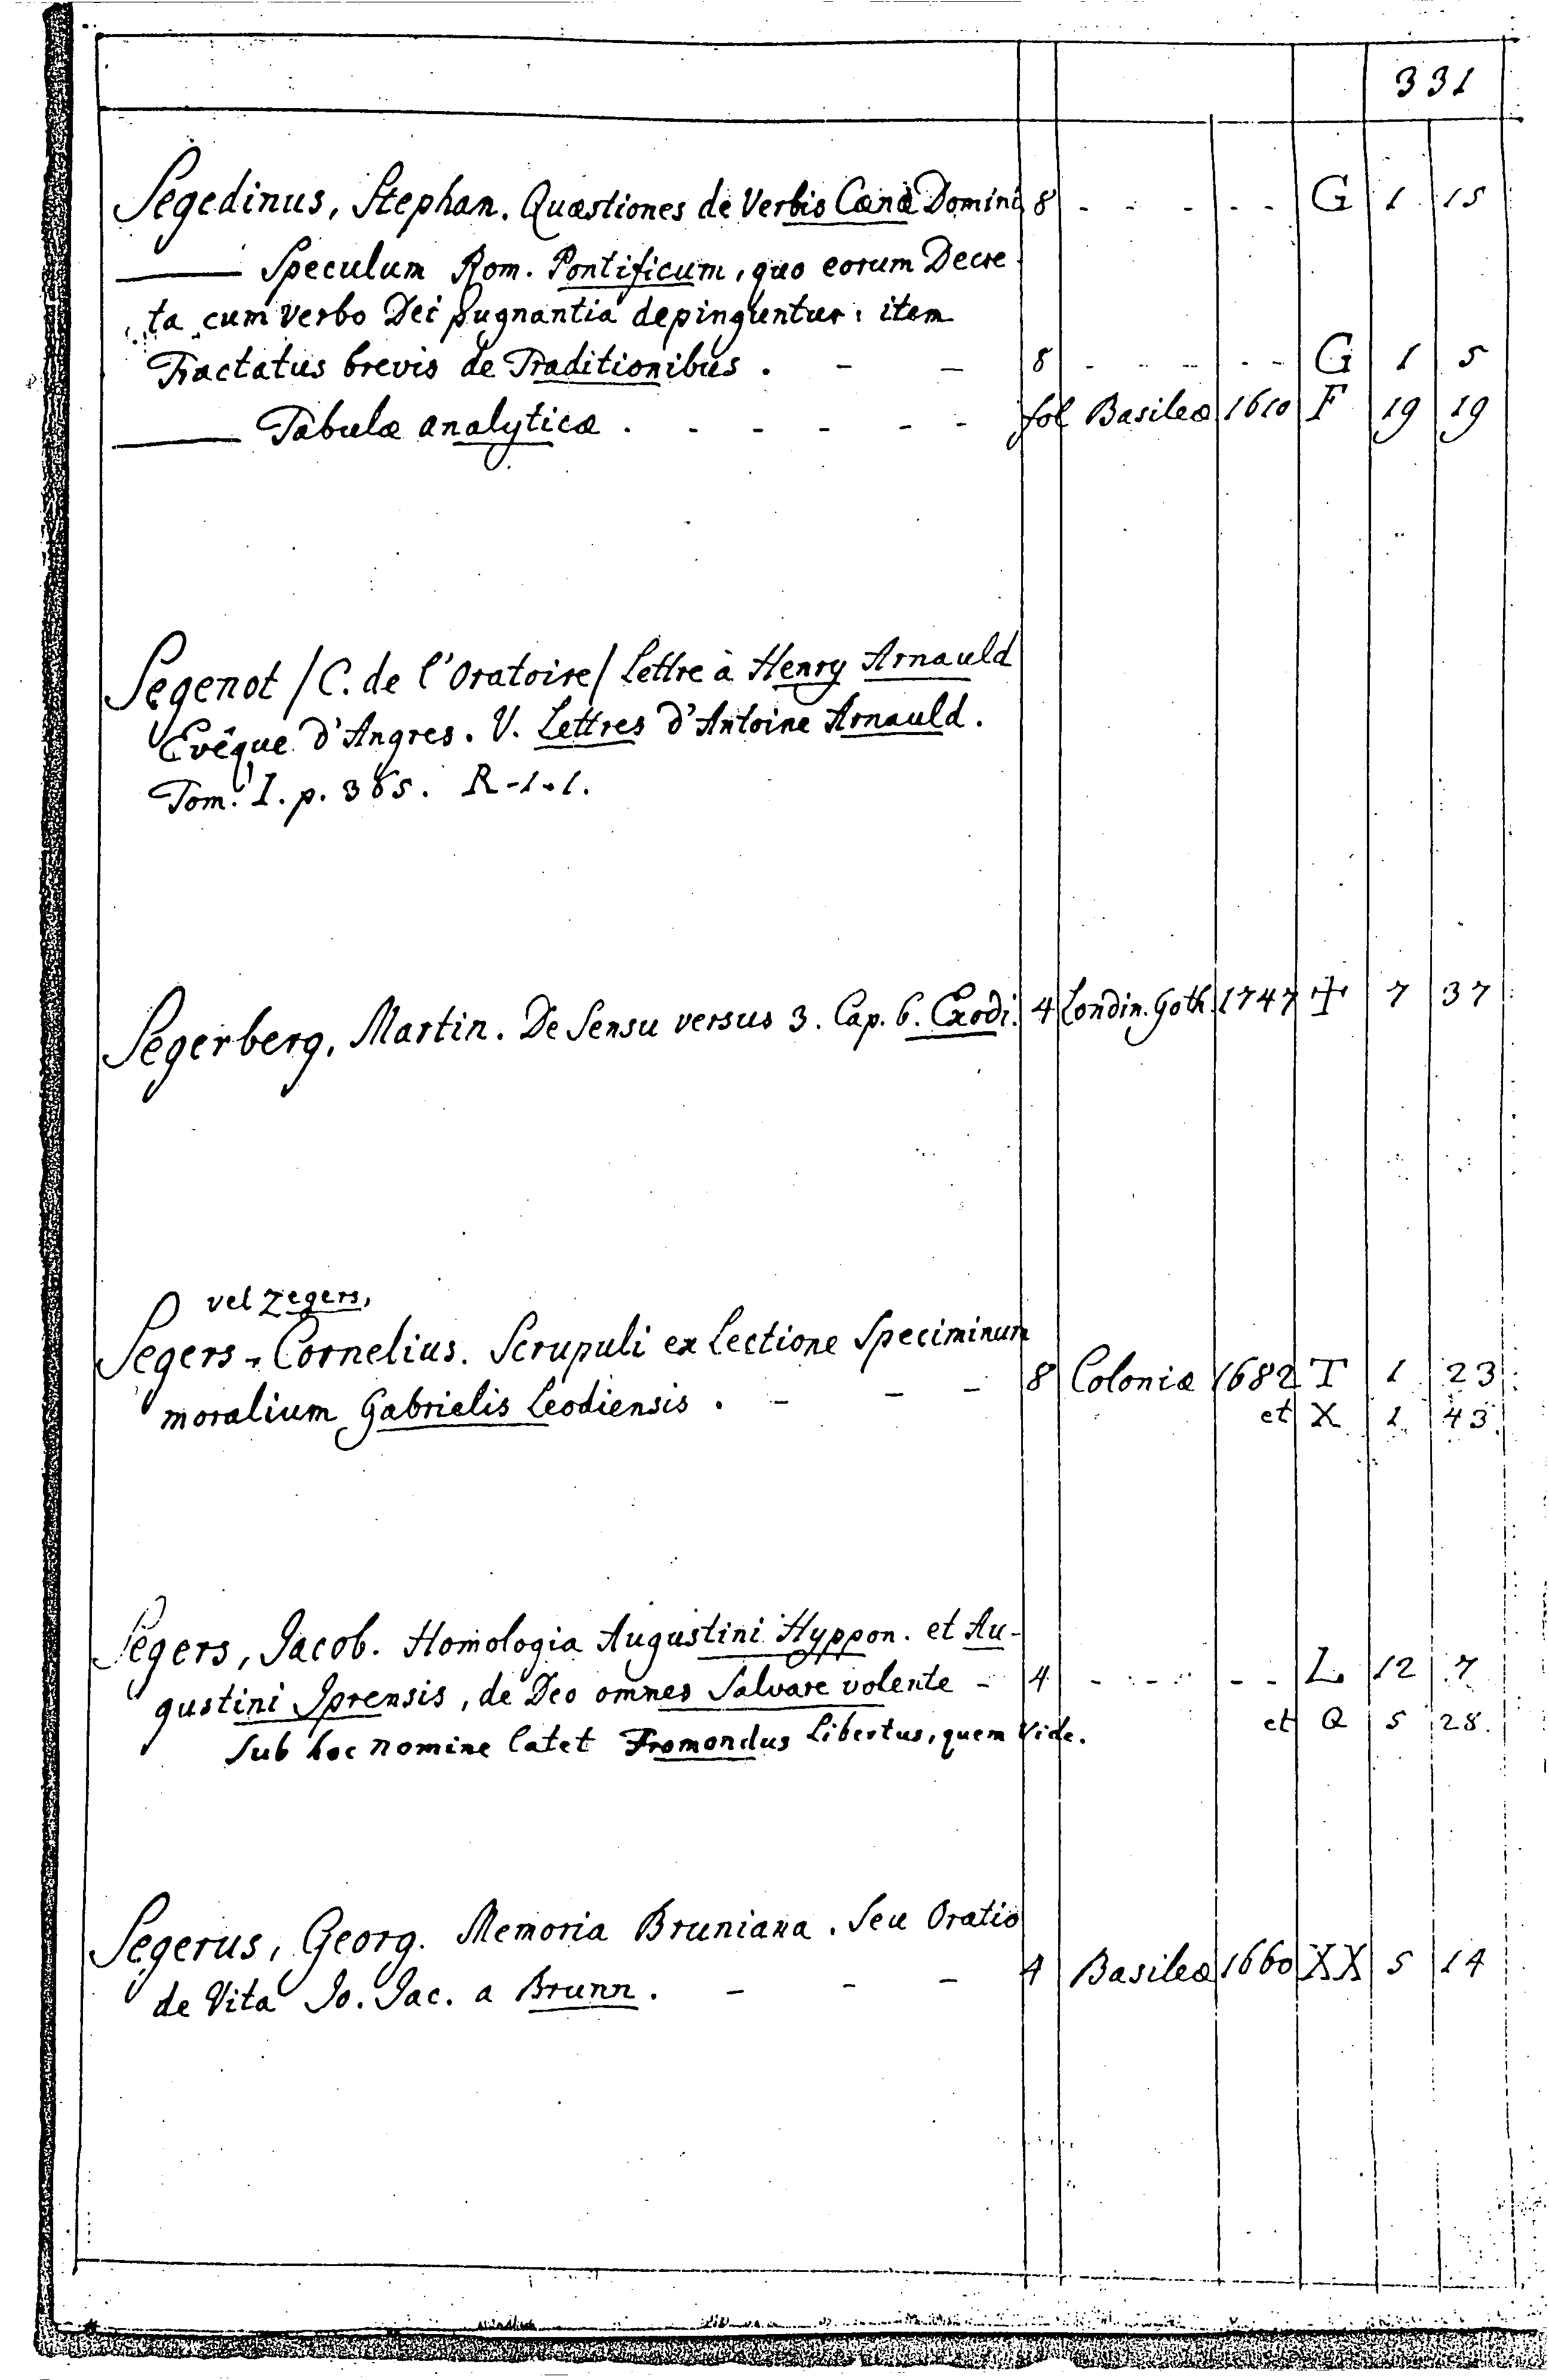 331
Segedinus, Stephan. Quæstiones de Verbis Cœnæ Domini 8 - - - - - G 1 15
——— Speculum Rom. Pontificum, quo eorum Decre
ta cum verbo Dei pugnantia depinguntur: item
Tractatus brevis de Traditionibus . - - 8 - - - - - G 1 5
——— Tabulæ analyticæ . - - - - - fol Basileæ 1610 F 19 19
Segenot /C. de l'Oratoire/ Lettre à Henry Arnauld
Evêque d'Angres. V. Lettres d'Antoine Arnauld.
Tom. I. p. 365. R-1-1.
Segerberg, Martin. De Sensu versus 3. Cap. 6. Exodi. 4 Londin. Goth. 1747 ☩ 7 37
vel Zegers,
Segers, Cornelius. Scrupuli ex Lectione Speciminum
moralium Gabrielis Leodiensis . - - - 8 Coloniæ 1682 T 1 23
et X 1 43
Segers, Jacob. Homologia Augustini Hyppon. et Au-
gustini Iprensis, de Deo omnes Salvare volente - 4 - - - - - L 12 7
et Q 5 28.
Sub hoc nomine latet Fromondus Libertus, quem Vide.
Segerus, Georg. Memoria Bruniana. Seu Oratio
de Vita Jo. Jac. a Brunn. - - - 4 Basileæ 1660 XX 5 14